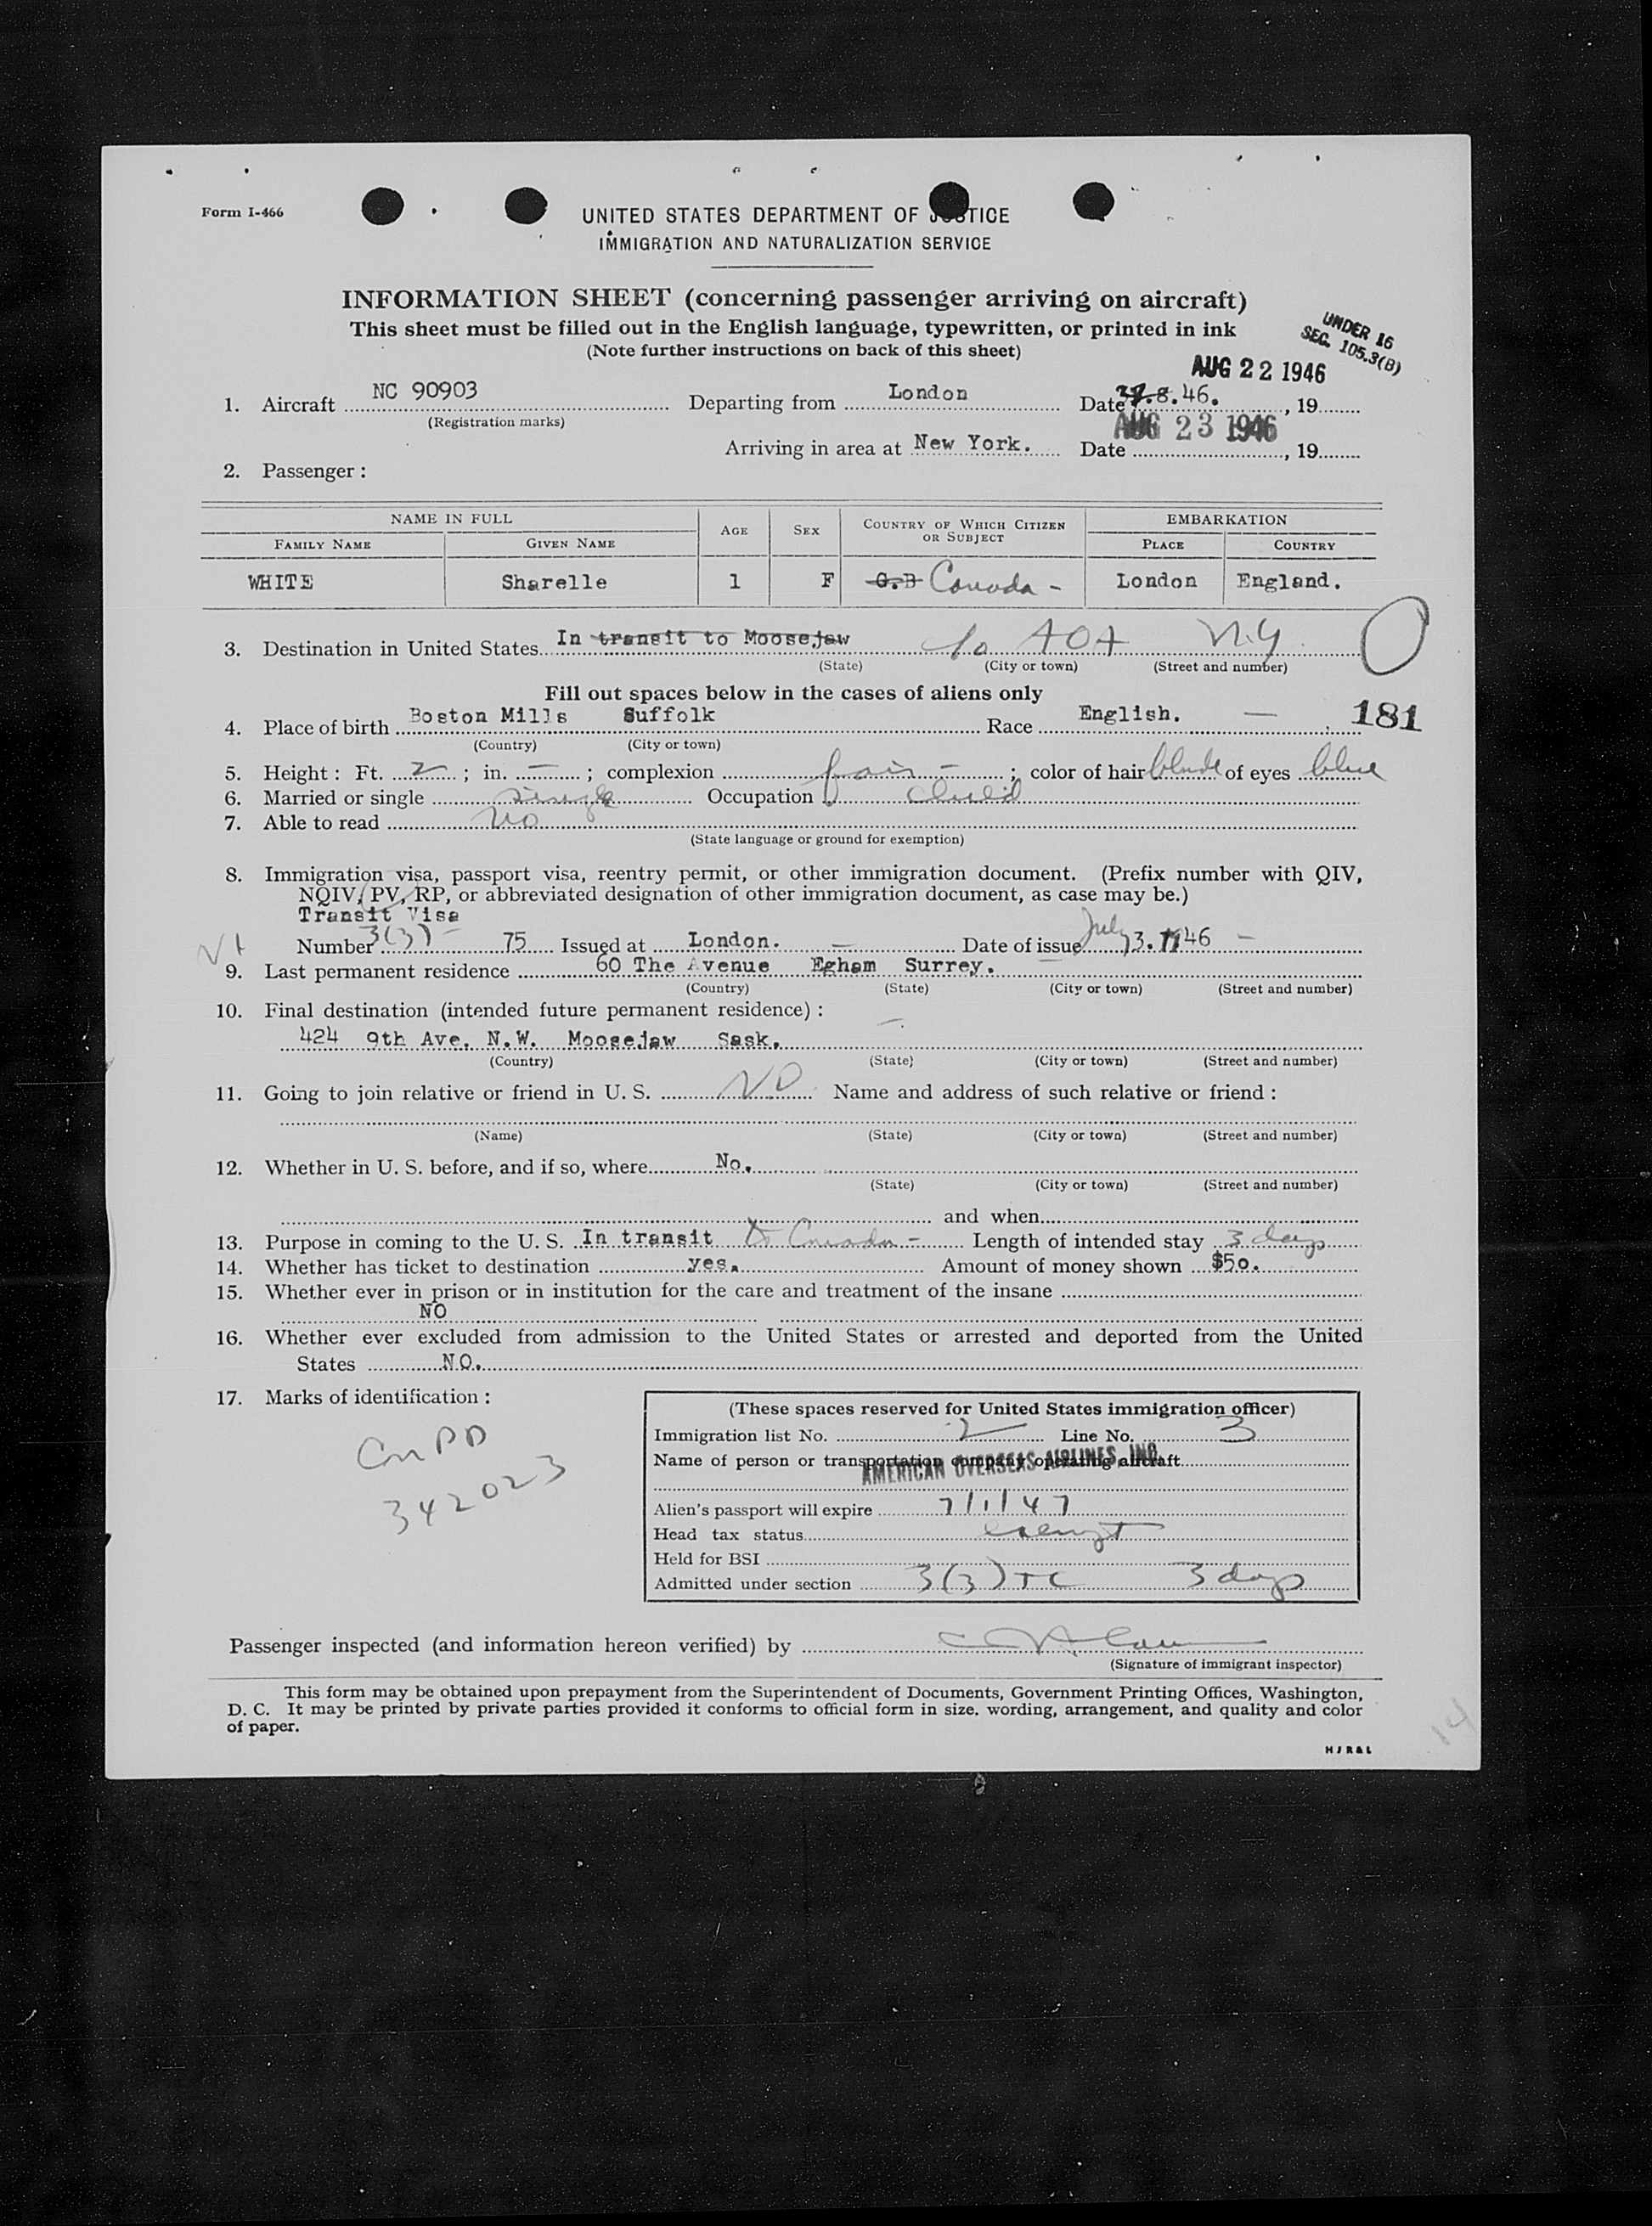 Form I-466
UNITED STATES DEPARTMENT OF JUSTICE
IMMIGRATION AND NATURALIZATION SERVICE
INFORMATION SHEET (concerning passenger arriving on aircraft)
This sheet must be filled out in the English language, typewritten, or printed in ink
(Note further instructions on back of this sheet)
UNDER 16
SEC. 105.3(B)
AUG 22 1946
1. Aircraft NC 90903 Departing from London Date .8.46. , 19
(Registration marks)
AUG 23 1946
Arriving in area at New York. Date , 19
2. Passenger:
NAME IN FULL AGE SEX COUNTRY OF WHICH CITIZEN OR SUBJECT EMBARKATION
FAMILY NAME GIVEN NAME PLACE COUNTRY
WHITE Sharelle 1 F G.B Canada - London England.
3. Destination in United States In transit to Moosejaw c/o AOA N.Y
(State) (City or town) (Street and number)
Fill out spaces below in the cases of aliens only
181
4. Place of birth Boston Mills Suffolk Race English. —
(Country) (City or town)
5. Height: Ft. 2 ; in. — ; complexion fair - ; color of hair blonde of eyes blue
6. Married or single single Occupation child
7. Able to read no
(State language or ground for exemption)
8. Immigration visa, passport visa, reentry permit, or other immigration document. (Prefix number with QIV,
NQIV, PV, RP, or abbreviated designation of other immigration document, as case may be.)
Transit Visa
Number 3(3) - 75 Issued at London. — Date of issue July 3. 1946 -
9. Last permanent residence 60 The Avenue Egham Surrey.
(Country) (State) (City or town) (Street and number)
10. Final destination (intended future permanent residence):
424 9th Ave. N.W. Moosejaw Sask.
(Country) (State) (City or town) (Street and number)
11. Going to join relative or friend in U. S. NO Name and address of such relative or friend:
(Name) (State) (City or town) (Street and number)
12. Whether in U. S. before, and if so, where No.
(State) (City or town) (Street and number)
and when
13. Purpose in coming to the U. S. In transit to Canada - Length of intended stay 3 days
14. Whether has ticket to destination yes. Amount of money shown $50.
15. Whether ever in prison or in institution for the care and treatment of the insane
NO
16. Whether ever excluded from admission to the United States or arrested and deported from the United
States NO.
17. Marks of identification:
Cn PD
342023
(These spaces reserved for United States immigration officer)
Immigration list No. 2 Line No. 3
Name of person or transportation company operating aircraft
AMERICAN OVERSEAS AIRLINES, INC.
Alien's passport will expire 7/1/47
Head tax status exempt
Held for BSI
Admitted under section 3(3) TC 3 days
Passenger inspected (and information hereon verified) by
(Signature of immigrant inspector)
This form may be obtained upon prepayment from the Superintendent of Documents, Government Printing Offices, Washington,
D. C. It may be printed by private parties provided it conforms to official form in size, wording, arrangement, and quality and color
of paper.
14
HJR&L